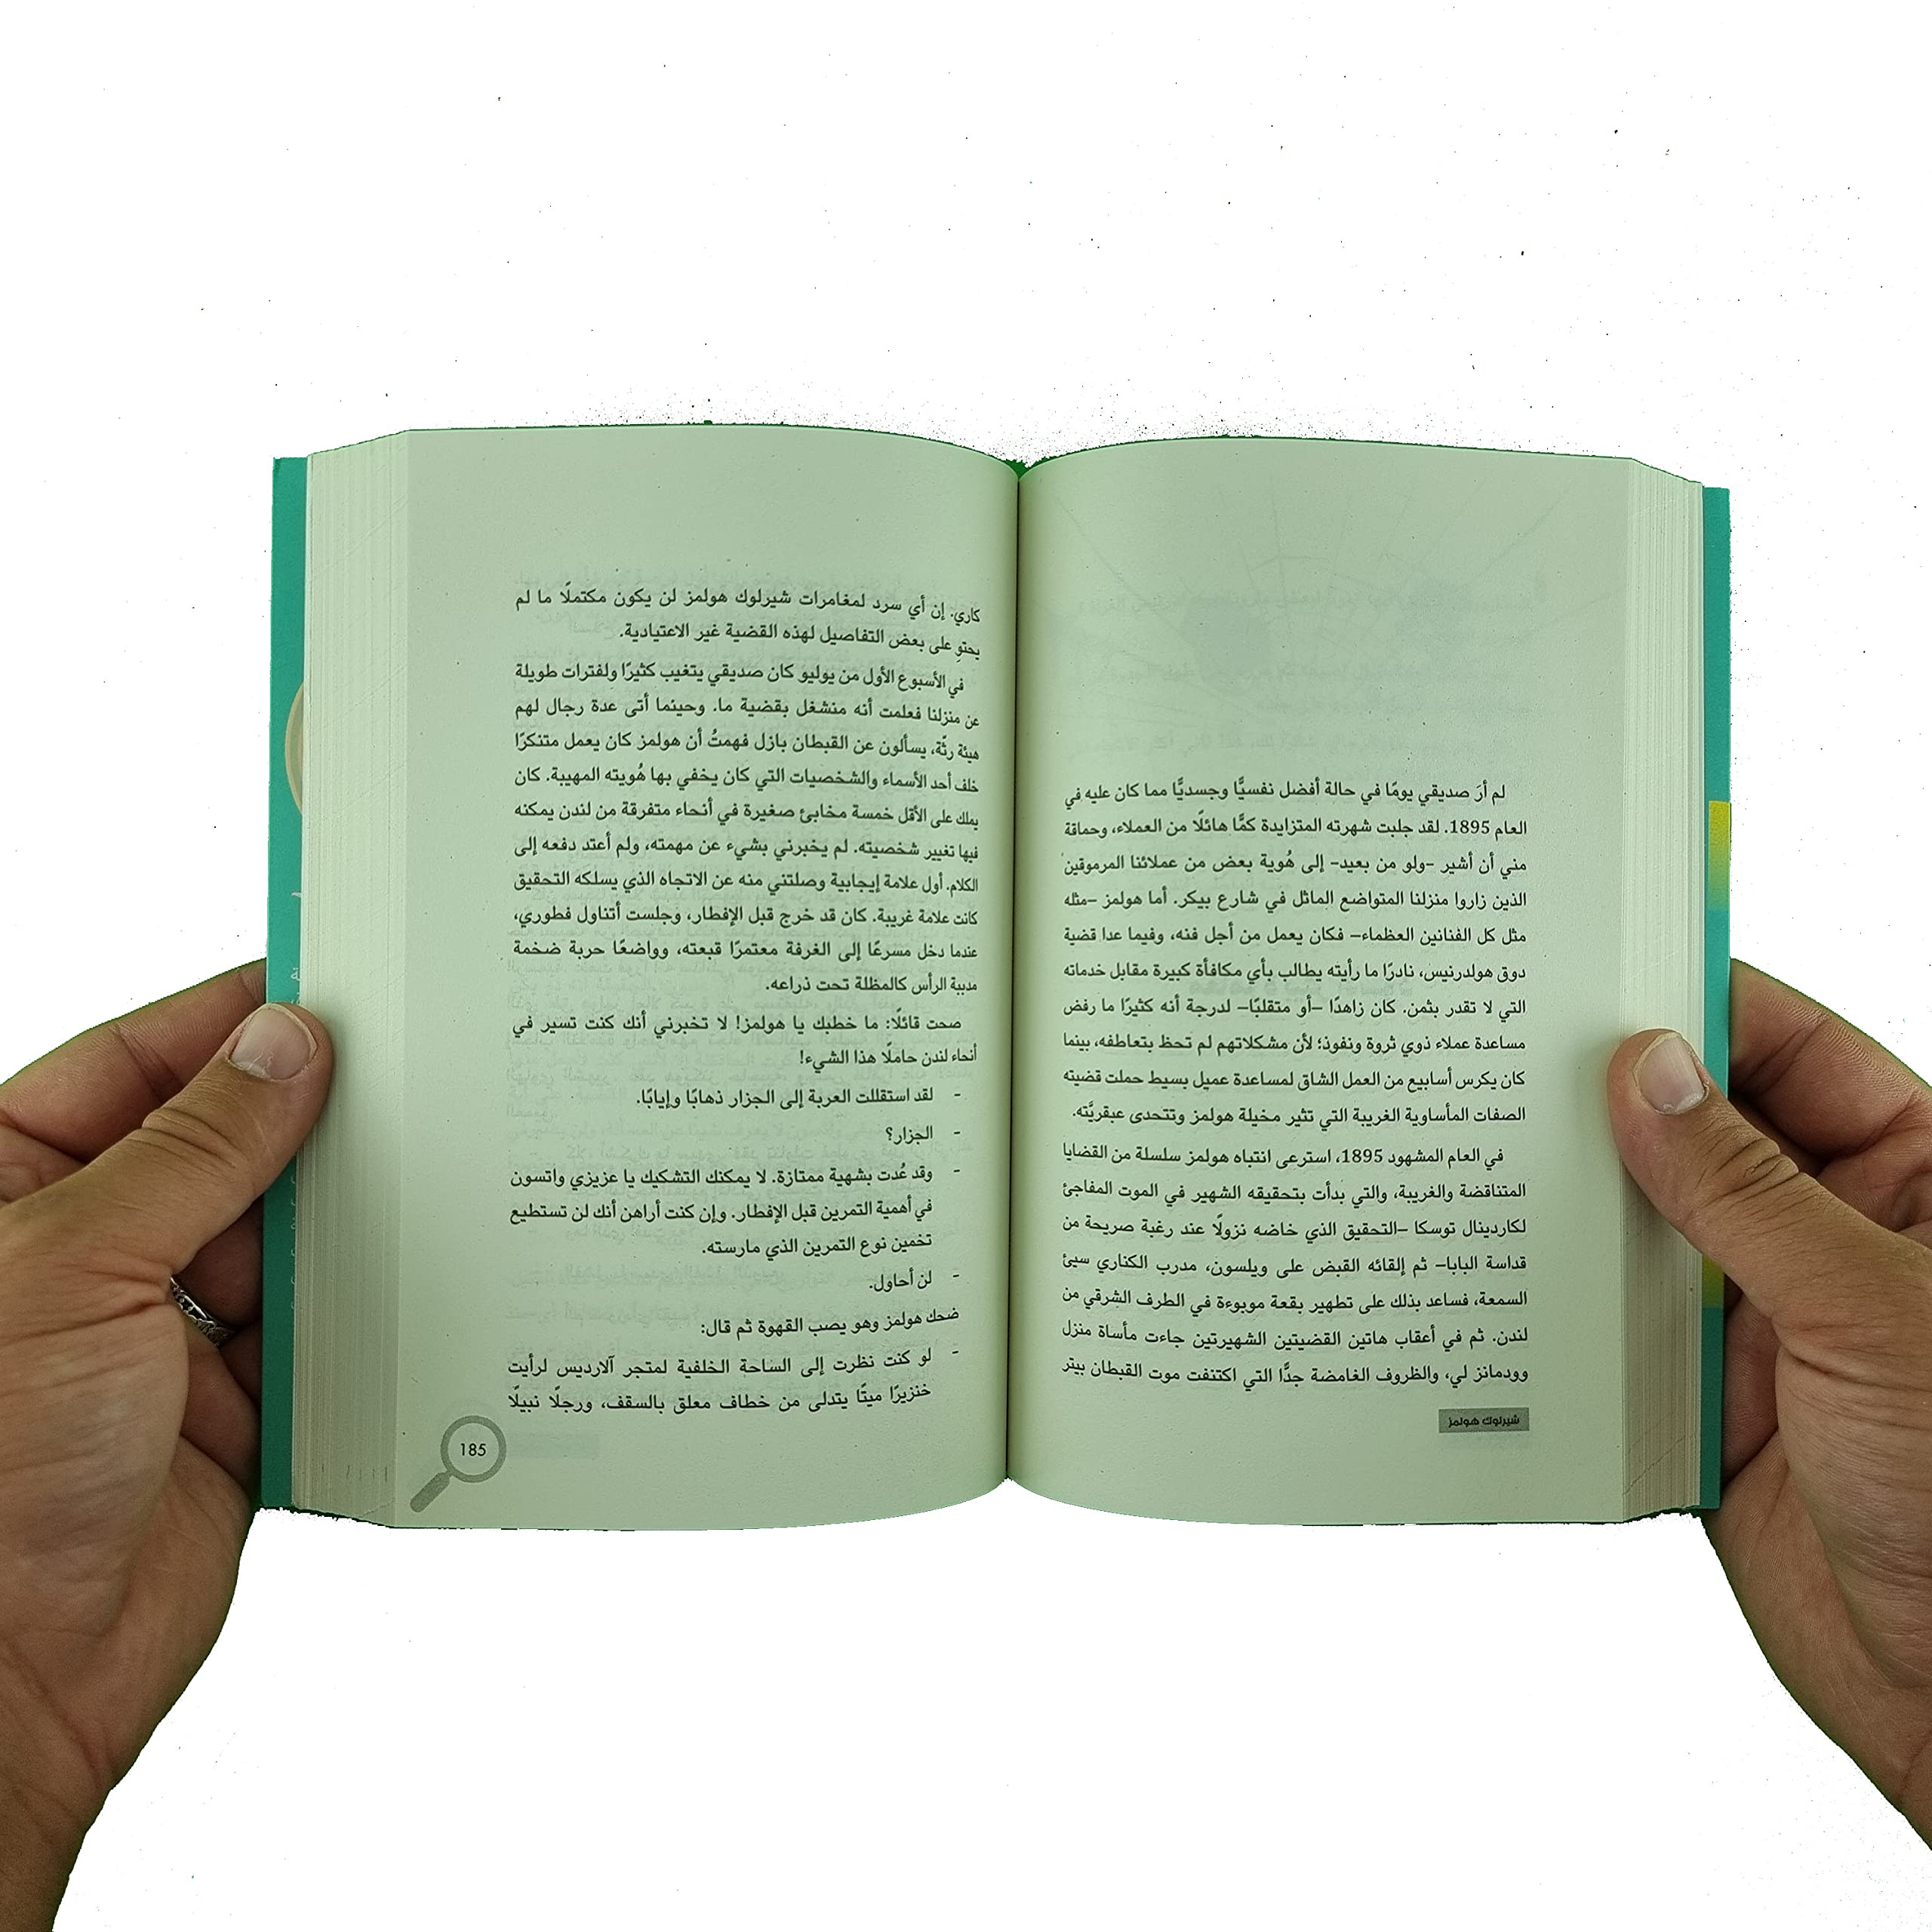 لم أرَ صديقي يومًا في حالة أفضل نفسيًّا وجسديًّا مما كان عليه في
العام 1895. لقد جلبت شهرته المتزايدة كمًّا هائلًا من العملاء، وحماقة
مني أن أشير –ولو من بعيد– إلى هُوية بعض من عملائنا المرموقين
الذين زاروا منزلنا المتواضع الماثل في شارع بيكر. أما هولمز –مثله
مثل كل الفنانين العظماء– فكان يعمل من أجل فنه، وفيما عدا قضية
دوق هولدرنيس، نادرًا ما رأيته يطالب بأي مكافأة كبيرة مقابل خدماته
التي لا تقدر بثمن. كان زاهدًا –أو متقلبًا– لدرجة أنه كثيرًا ما رفض
مساعدة عملاء ذوي ثروة ونفوذ؛ لأن مشكلاتهم لم تحظ بتعاطفه، بينما
كان يكرس أسابيع من العمل الشاق لمساعدة عميل بسيط حملت قضيته
الصفات المأساوية الغريبة التي تثير مخيلة هولمز وتتحدى عبقريَّته.
في العام المشهود 1895، استرعى انتباه هولمز سلسلة من القضايا
المتناقضة والغريبة، والتي بدأت بتحقيقه الشهير في الموت المفاجئ
لكاردينال توسكا –التحقيق الذي خاضه نزولًا عند رغبة صريحة من
قداسة البابا– ثم إلقائه القبض على ويلسون، مدرب الكناري سيئ
السمعة، فساعد بذلك على تطهير بقعة موبوءة في الطرف الشرقي من
لندن. ثم في أعقاب هاتين القضيتين الشهيرتين جاءت مأساة منزل
وودمانز لي، والظروف الغامضة جدًّا التي اكتنفت موت القبطان بيتر
شيرلوك هولمز
كاري. إن أي سرد لمغامرات شيرلوك هولمز لن يكون مكتملًا ما لم
يحتوِ على بعض التفاصيل لهذه القضية غير الاعتيادية.
في الأسبوع الأول من يوليو كان صديقي يتغيب كثيرًا ولفترات طويلة
عن منزلنا فعلمت أنه منشغل بقضية ما. وحينما أتى عدة رجال لهم
هيئة رثّة، يسألون عن القبطان بازل فهمتُ أن هولمز كان يعمل متنكرًا
خلف أحد الأسماء والشخصيات التي كان يخفي بها هُويته المهيبة. كان
يملك على الأقل خمسة مخابئ صغيرة في أنحاء متفرقة من لندن يمكنه
فيها تغيير شخصيته. لم يخبرني بشيء عن مهمته، ولم أعتد دفعه إلى
الكلام. أول علامة إيجابية وصلتني منه عن الاتجاه الذي يسلكه التحقيق
كانت علامة غريبة. كان قد خرج قبل الإفطار، وجلست أتناول فطوري،
عندما دخل مسرعًا إلى الغرفة معتمرًا قبعته، وواضعًا حربة ضخمة
مدببة الرأس كالمظلة تحت ذراعه.
صحت قائلًا: ما خطبك يا هولمز! لا تخبرني أنك كنت تسير في
أنحاء لندن حاملًا هذا الشيء!
- لقد استقللت العربة إلى الجزار ذهابًا وإيابًا.
- الجزار؟
- وقد عُدت بشهية ممتازة. لا يمكنك التشكيك يا عزيزي واتسون
في أهمية التمرين قبل الإفطار. وإن كنت أراهن أنك لن تستطيع
تخمين نوع التمرين الذي مارسته.
- لن أحاول.
ضحك هولمز وهو يصب القهوة ثم قال:
- لو كنت نظرت إلى الساحة الخلفية لمتجر آلارديس لرأيت
خنزيرًا ميتًا يتدلى من خطاف معلق بالسقف، ورجلًا نبيلًا
185